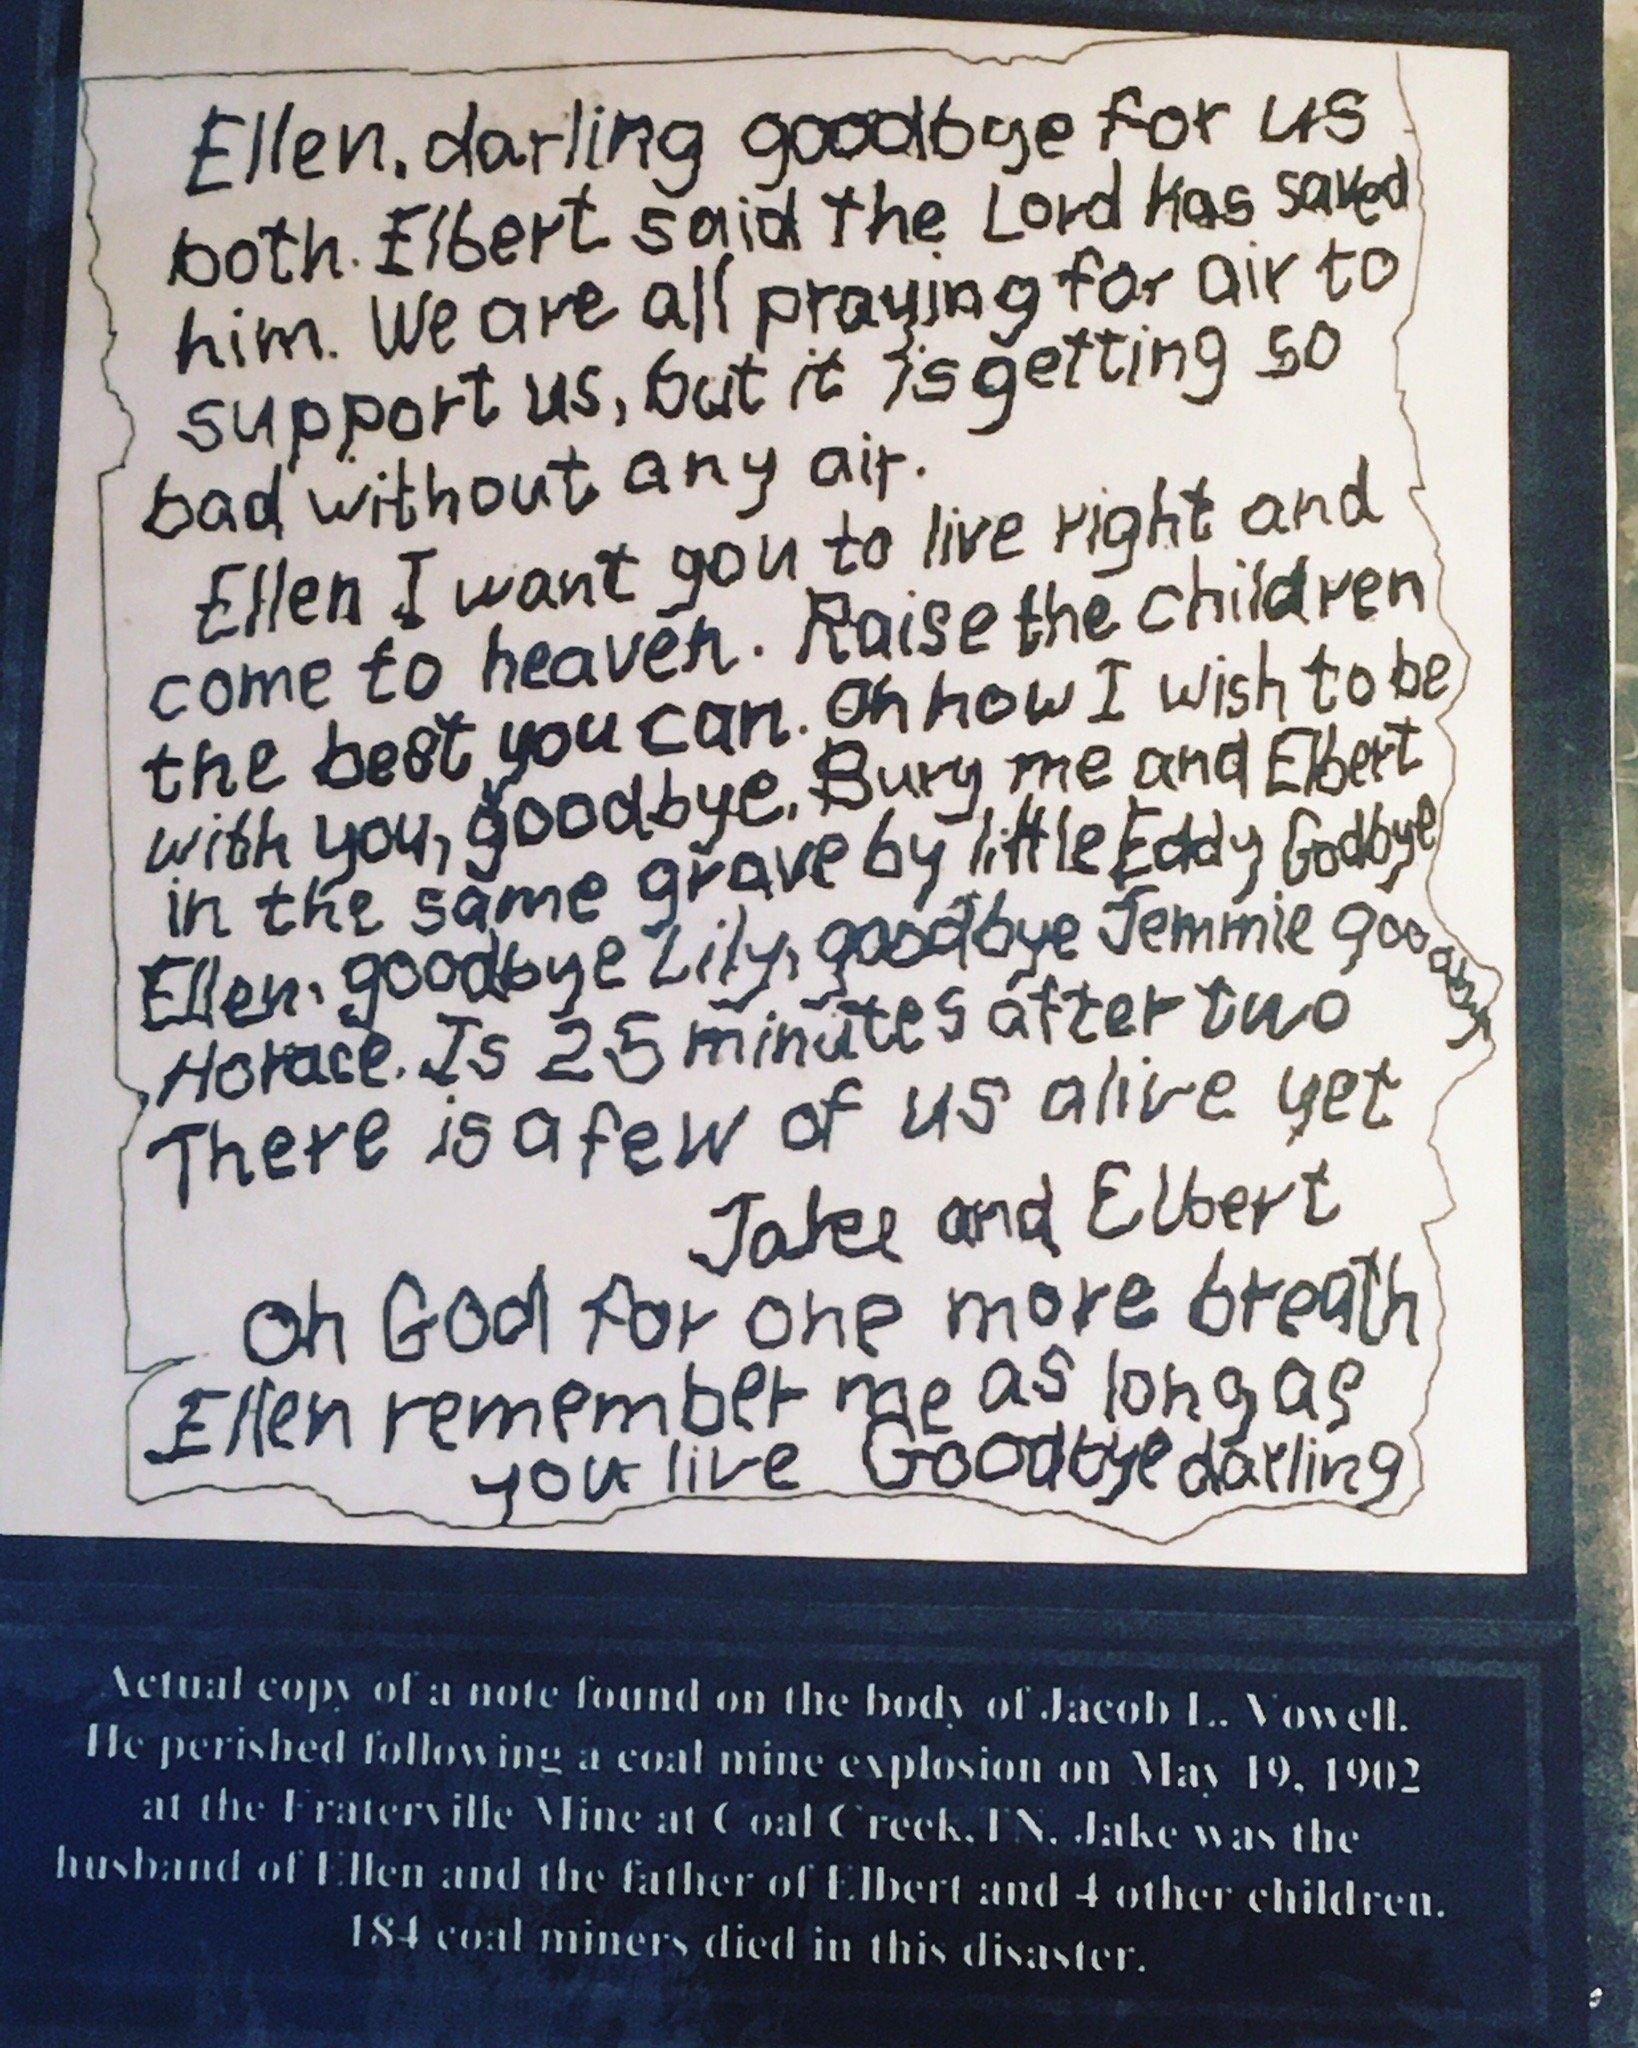 Ellen, darling goodbye for us
both. Elbert said the Lord has saved
him. We are all praying for air to
support us, but it is getting so
bad without any air.
Ellen I want you to live right and
come to heaven. Raise the children
the best you can. Oh how I wish to be
with you, goodbye. Bury me and Elbert
in the same grave by little Eddy Godbye
Ellen, goodbye Lily, goodbye Jemmie goodby
Horace. Is 25 minutes after two
There is a few of us alive yet
Jake and Elbert
Oh God for one more breath
Ellen remember me as long as
you live Goodbye darling
Actual copy of a note found on the body of Jacob L. Vowell.
He perished following a coal mine explosion on May 19, 1902
at the Fraterville Mine at Coal Creek, TN. Jake was the
husband of Ellen and the father of Elbert and 4 other children.
184 coal miners died in this disaster.